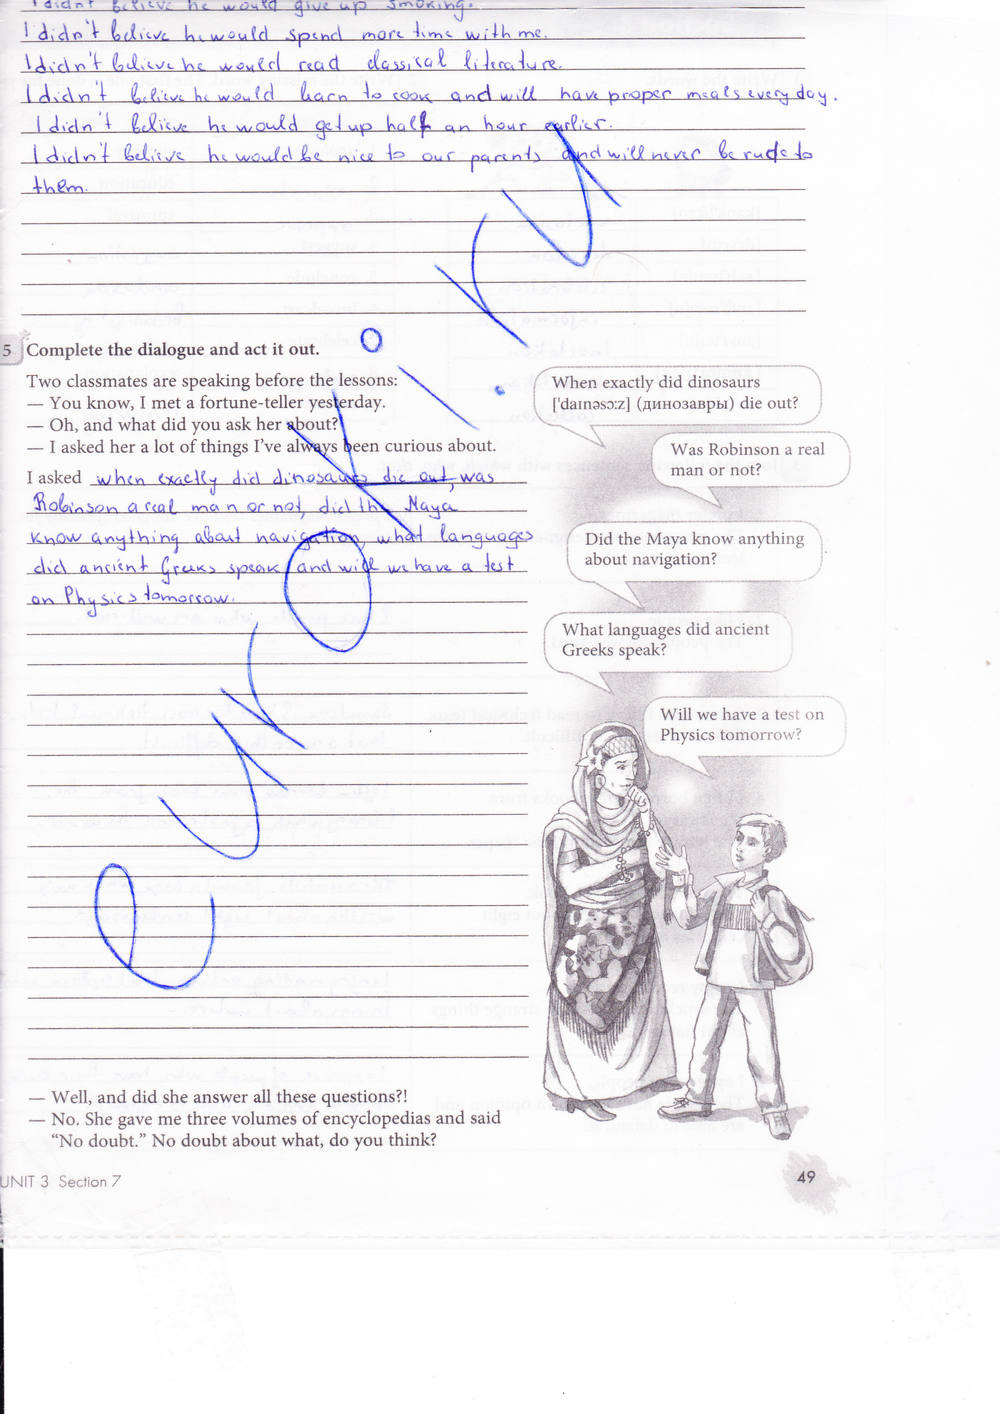 I didn't believe he would give up smoking.
I didn't believe he would spend more time with me.
I didn't believe he would read classical literature.
I didn't believe he would learn to cook and will have proper meals every day.
I didn't believe he would get up half an hour earlier.
I didn't believe he would be nice to our parents and will never be rude to
them.
5 Complete the dialogue and act it out.
Two classmates are speaking before the lessons:
— You know, I met a fortune-teller yesterday.
— Oh, and what did you ask her about?
— I asked her a lot of things I've always been curious about.
I asked when exactly did dinosaurs die out, was
Robinson a real man or not, did the Maya
know anything about navigation, what languages
did ancient Greeks speak and will we have a test
on Physics tomorrow.
When exactly did dinosaurs
['daɪnəsɔ:z] (динозавры) die out?
Was Robinson a real
man or not?
Did the Maya know anything
about navigation?
What languages did ancient
Greeks speak?
Will we have a test on
Physics tomorrow?
euroki.ru
— Well, and did she answer all these questions?!
— No. She gave me three volumes of encyclopedias and said
“No doubt.” No doubt about what, do you think?
UNIT 3 Section 7
49